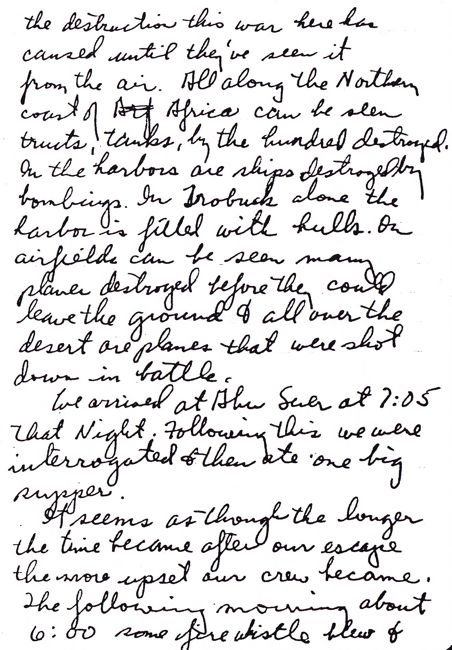 the destruction this war here has
caused until they've seen it
from the air. All along the Northern
coast of Africa can be seen
trucks, tanks, by the hundred destroyed.
In the harbors are ships destroyed by
bombings. In Trobuck alone the
harbor is filled with hulls. On
airfields can be seen many
planes destroyed before they could
leave the ground & all over the
desert are planes that were shot
down in battle.
We arrived at Abu Suer at 7:05
that Night. Following this we were
interrogated & then ate one big
supper.
It seems as though the longer
the time became after our escape
the more upset our crew became.
The following morning about
6:00 some fire whistle blew &